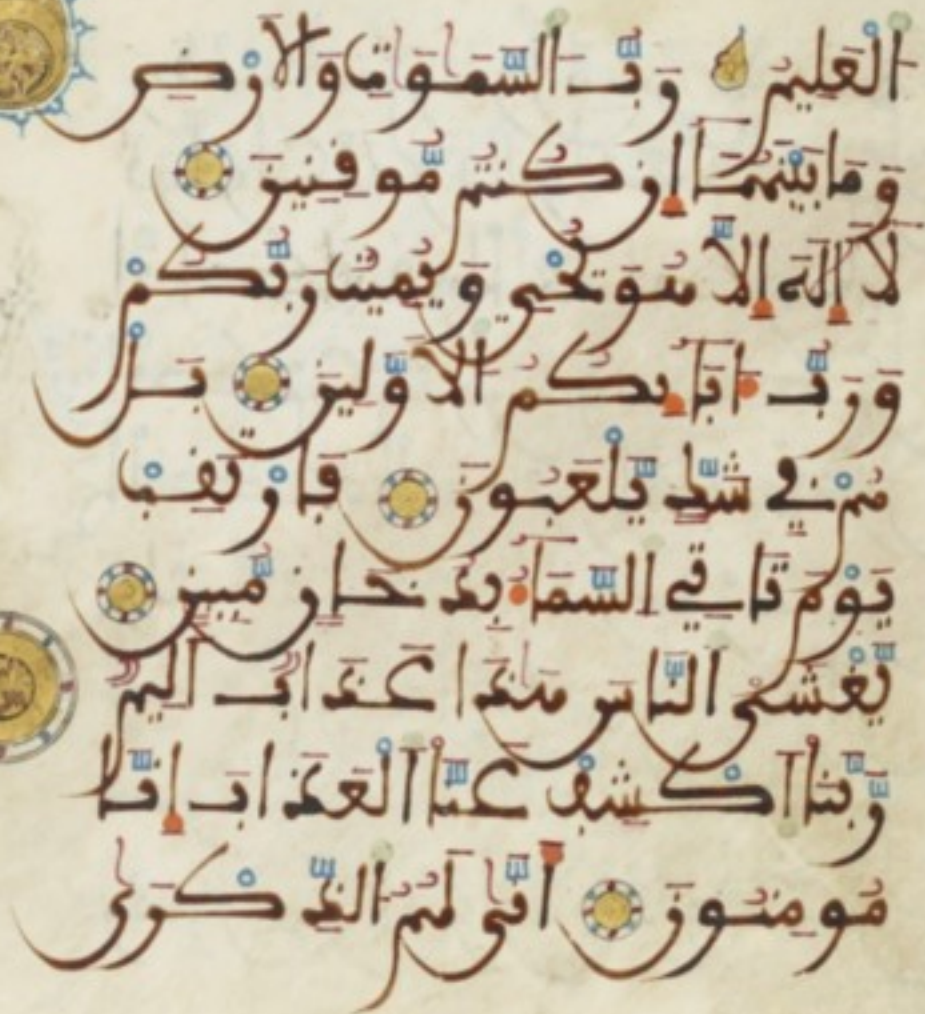 الْعَلِيمُ رَبُّ السَّمَٰوَٰتِ وَالْأَرْضِ
وَمَا بَيْنَهُمَا إِن كُنتُم مُّوقِنِينَ
لَا إِلَٰهَ إِلَّا هُوَ يُحْيِي وَيُمِيتُ رَبُّكُمْ
وَرَبُّ ءَابَائِكُمُ الْأَوَّلِينَ بَلْ
هُمْ فِي شَكٍّ يَلْعَبُونَ فَارْتَقِبْ
يَوْمَ تَأْتِي السَّمَاءُ بِدُخَانٍ مُّبِينٍ
يَغْشَى النَّاسَ هَٰذَا عَذَابٌ أَلِيمٌ
رَّبَّنَا اكْشِفْ عَنَّا الْعَذَابَ إِنَّا
مُومِنُونَ أَنَّىٰ لَهُمُ الذِّكْرَىٰ